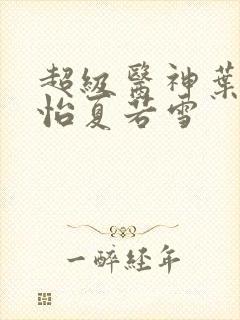 超級醫神葉
怡夏若雪
一醉經年